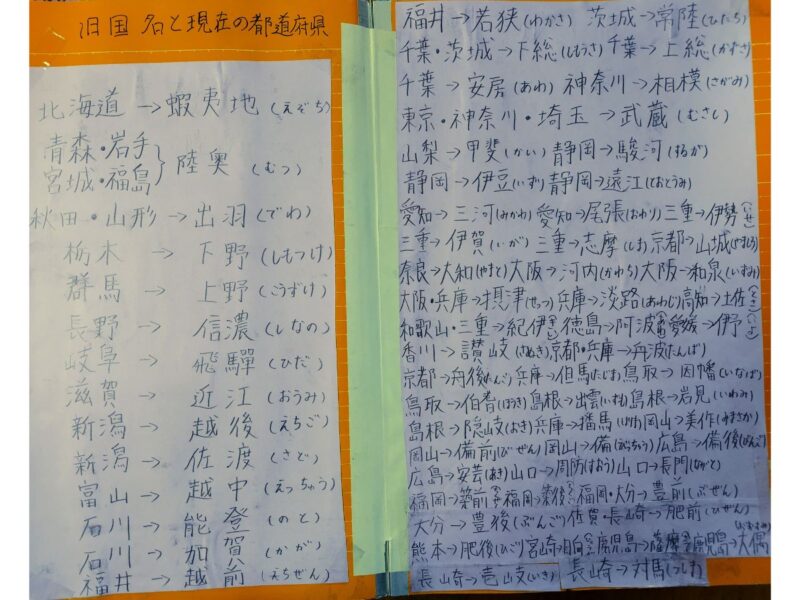 旧国名と現在の都道府県
北海道→蝦夷地(えぞち)
青森・岩手
宮城・福島 } 陸奥(むつ)
秋田・山形→出羽(でわ)
栃木→下野(しもつけ)
群馬→上野(こうずけ)
長野→信濃(しなの)
岐阜→飛騨(ひだ)
滋賀→近江(おうみ)
新潟→越後(えちご)
新潟→佐渡(さど)
富山→越中(えっちゅう)
石川→能登(のと)
石川→加賀(かが)
福井→越前(えちぜん)
福井→若狭(わかさ) 茨城→常陸(ひたち)
千葉・茨城→下総(しもうさ) 千葉→上総(かずさ)
千葉→安房(あわ) 神奈川→相模(さがみ)
東京・神奈川・埼玉→武蔵(むさし)
山梨→甲斐(かい) 静岡→駿河(するが)
静岡→伊豆(いず) 静岡→遠江(とおとうみ)
愛知→三河(みかわ) 愛知→尾張(おわり) 三重→伊勢(いせ)
三重→伊賀(いが) 三重→志摩(しま) 京都→山城(やましろ)
奈良→大和(やまと) 大阪→河内(かわち) 大阪→和泉(いずみ)
大阪・兵庫→摂津(せっつ) 兵庫→淡路(あわじ) 高知→土佐(とさ)
和歌山・三重→紀伊(きい) 徳島→阿波(あわ) 愛媛→伊予(いよ)
香川→讃岐(さぬき) 京都・兵庫→丹波(たんば)
京都→丹後(たんご) 兵庫→但馬(たじま) 鳥取→因幡(いなば)
鳥取→伯耆(ほうき) 島根→出雲(いずも) 島根→岩見(いわみ)
島根→隠岐(おき) 兵庫→播馬(はりま) 岡山→美作(みまさか)
岡山→備前(びぜん) 岡山→備(びっちゅう) 広島→備後(びんご)
広島→安芸(あき) 山口→周防(すおう) 山口→長門(ながと)
福岡→築前 福岡→築後 福岡・大分→豊前(ぶぜん)
大分→豊後(ぶんご) 佐賀・長崎→肥前(ひぜん)
熊本→肥後(ひご) 宮崎→日向 鹿児島→薩摩 鹿児島→大隅(おおすみ)
長崎→壱岐(いき) 長崎→対馬(つしま)